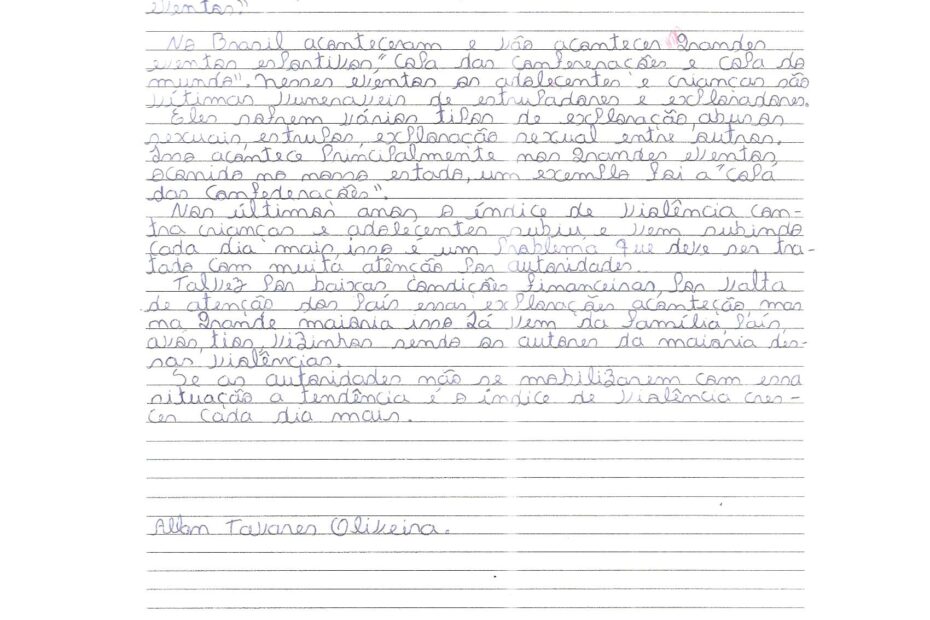 eventos?"
No Brasil aconteceram e vão acontecer grandes
eventos esportivos "Copa das Conferenações e Copa do
mundo". Nesses eventos os adolecentes e crianças são
vítimas vumeraveis de estrupadores e exploradores.
Eles sofrem vários tipos de exploração, abusos
sexuais, estrupos, exploração sexual entre outros.
Isso acontece principalmente nos grandes eventos
ocorrido no nosso estado, um exemplo foi a "Copa
das Confederações".
Nos últimos anos o índice de violência con-
tra crianças e adolecentes subiu e vem subindo
cada dia mais isso é um problema que deve ser tra-
tado com muita atenção por autoridades.
Talvez por baixas condições financeiras, por valta
de atenção dos país essas explorações aconteção, mas
na grande maioria isso já vem da família, país,
avós, tios, vizinhos sendo os autores da maioria des-
sas violências.
Se as autoridades não se mobilizarem com essa
situação a tendência é o índice de violência cres-
cer cada dia mais.
Tavares Oliveira.